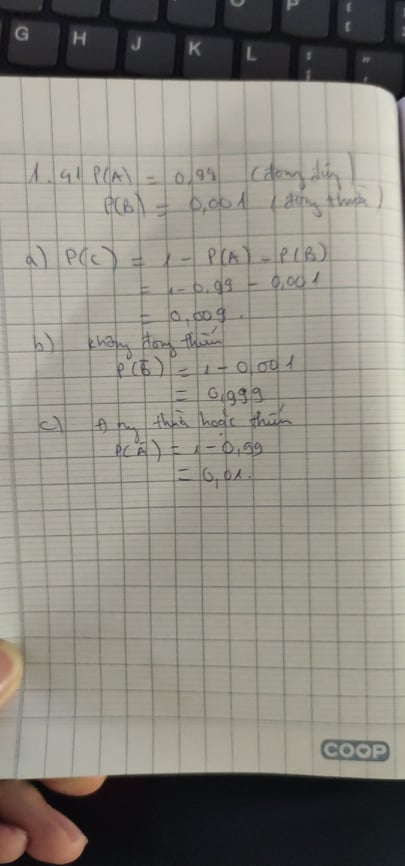 G H J K L
1.41 P(A) = 0,99 (đóng đúng)
P(B) = 0,001 (đóng thừa)
a) P(C) = 1 - P(A) - P(B)
= 1 - 0,99 - 0,001
= 0,009.
b) không đóng thiếu
P(B̄) = 1 - 0,001
= 0,999
c) thừa hoặc thiếu
P(Ā) = 1 - 0,99
= 0,01.
COOP